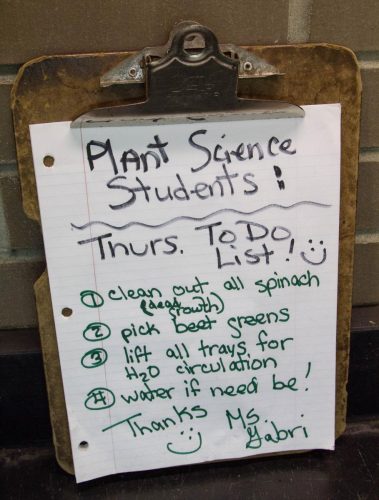 Plant Science
Students!
Thurs. To Do
List!
① clean out all spinach
(dead growth)
② pick beet greens
③ lift all trays for
H₂O circulation
④ water if need be!
Thanks
Ms.
Gabri